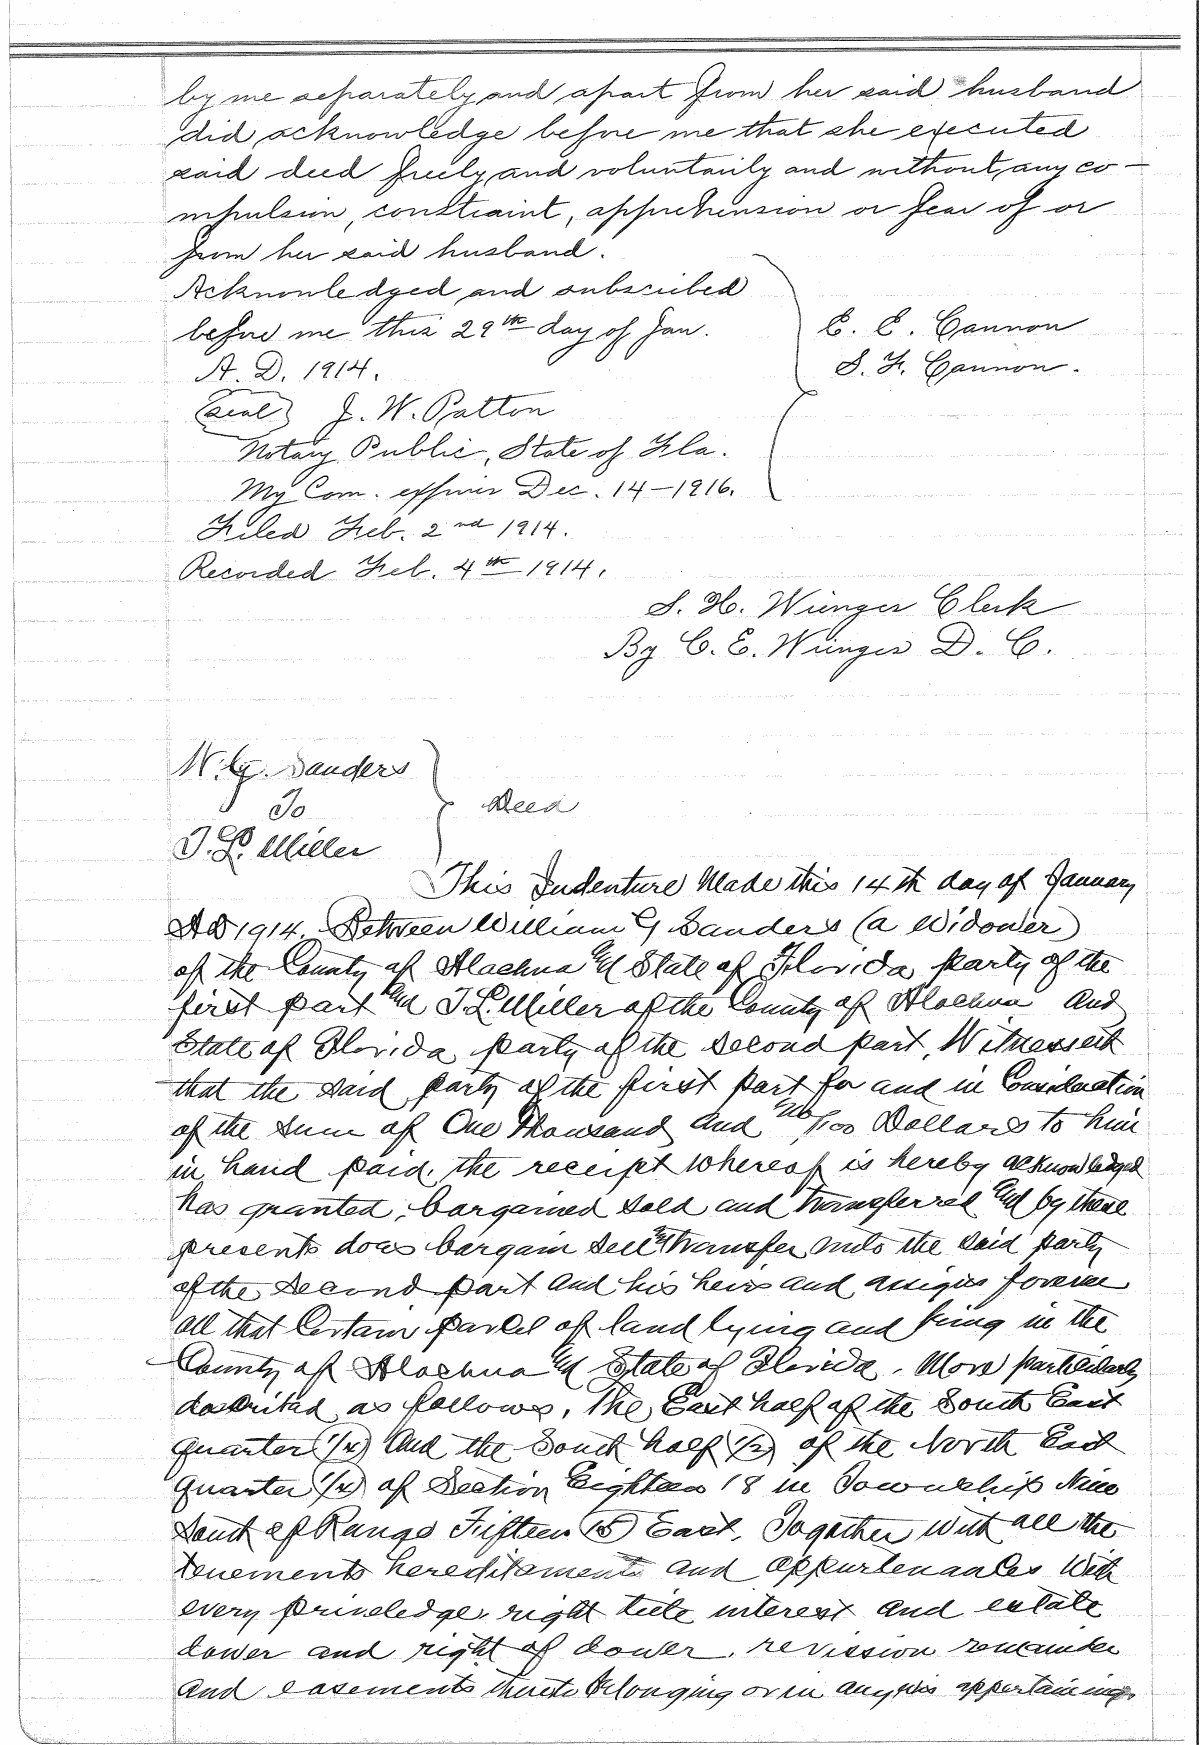 by me separately and apart from her said husband
did acknowledge before me that she executed
said deed freely and voluntarily and without any co-
mpulsion, constraint, apprehension or fear of or
from her said husband.
Acknowledged and subscribed
before me this 29th day of Jan.
A. D. 1914.
E. E. Cannon
S. F. Cannon.
(seal) J. W. Patton
Notary Public, State of Fla.
My Com. expires Dec. 14-1916.
Filed Feb. 2nd 1914.
Recorded Feb. 4th 1914.
S. H. Wienges Clerk
By C. E. Wienges D. C.
W. G. Sanders
To
Deed
T. L. Miller
This Indenture Made this 14th day of January
AD 1914. Between William G Sanders (a Widower)
of the County of Alachua and State of Florida party of the
first part and T. L. Miller of the County of Alachua and
State of Florida party of the second part, Witnesseth
that the said party of the first part for and in Consideration
of the sum of One Thousand and no/100 Dollars to him
in hand paid, the receipt whereof is hereby acknowledged
has granted, bargained sold and transferred and by these
presents does bargain sell and transfer unto the said party
of the second part and his heirs and assigns forever
all that Certain parcel of land lying and being in the
County of Alachua and State of Florida. More particularly
described as follows, The East half of the South East
quarter (1/4) And the South half (1/2) of the North East
quarter (1/4) of Section Eighteen 18 in Township Nine
South of Range Fifteen (15) East. Together with all the
tenements hereditaments and appurtenances With
every priveledge, right title interest and estate
dower and right of dower, revission remainder
and easements thereto belonging or in anywise appertaining